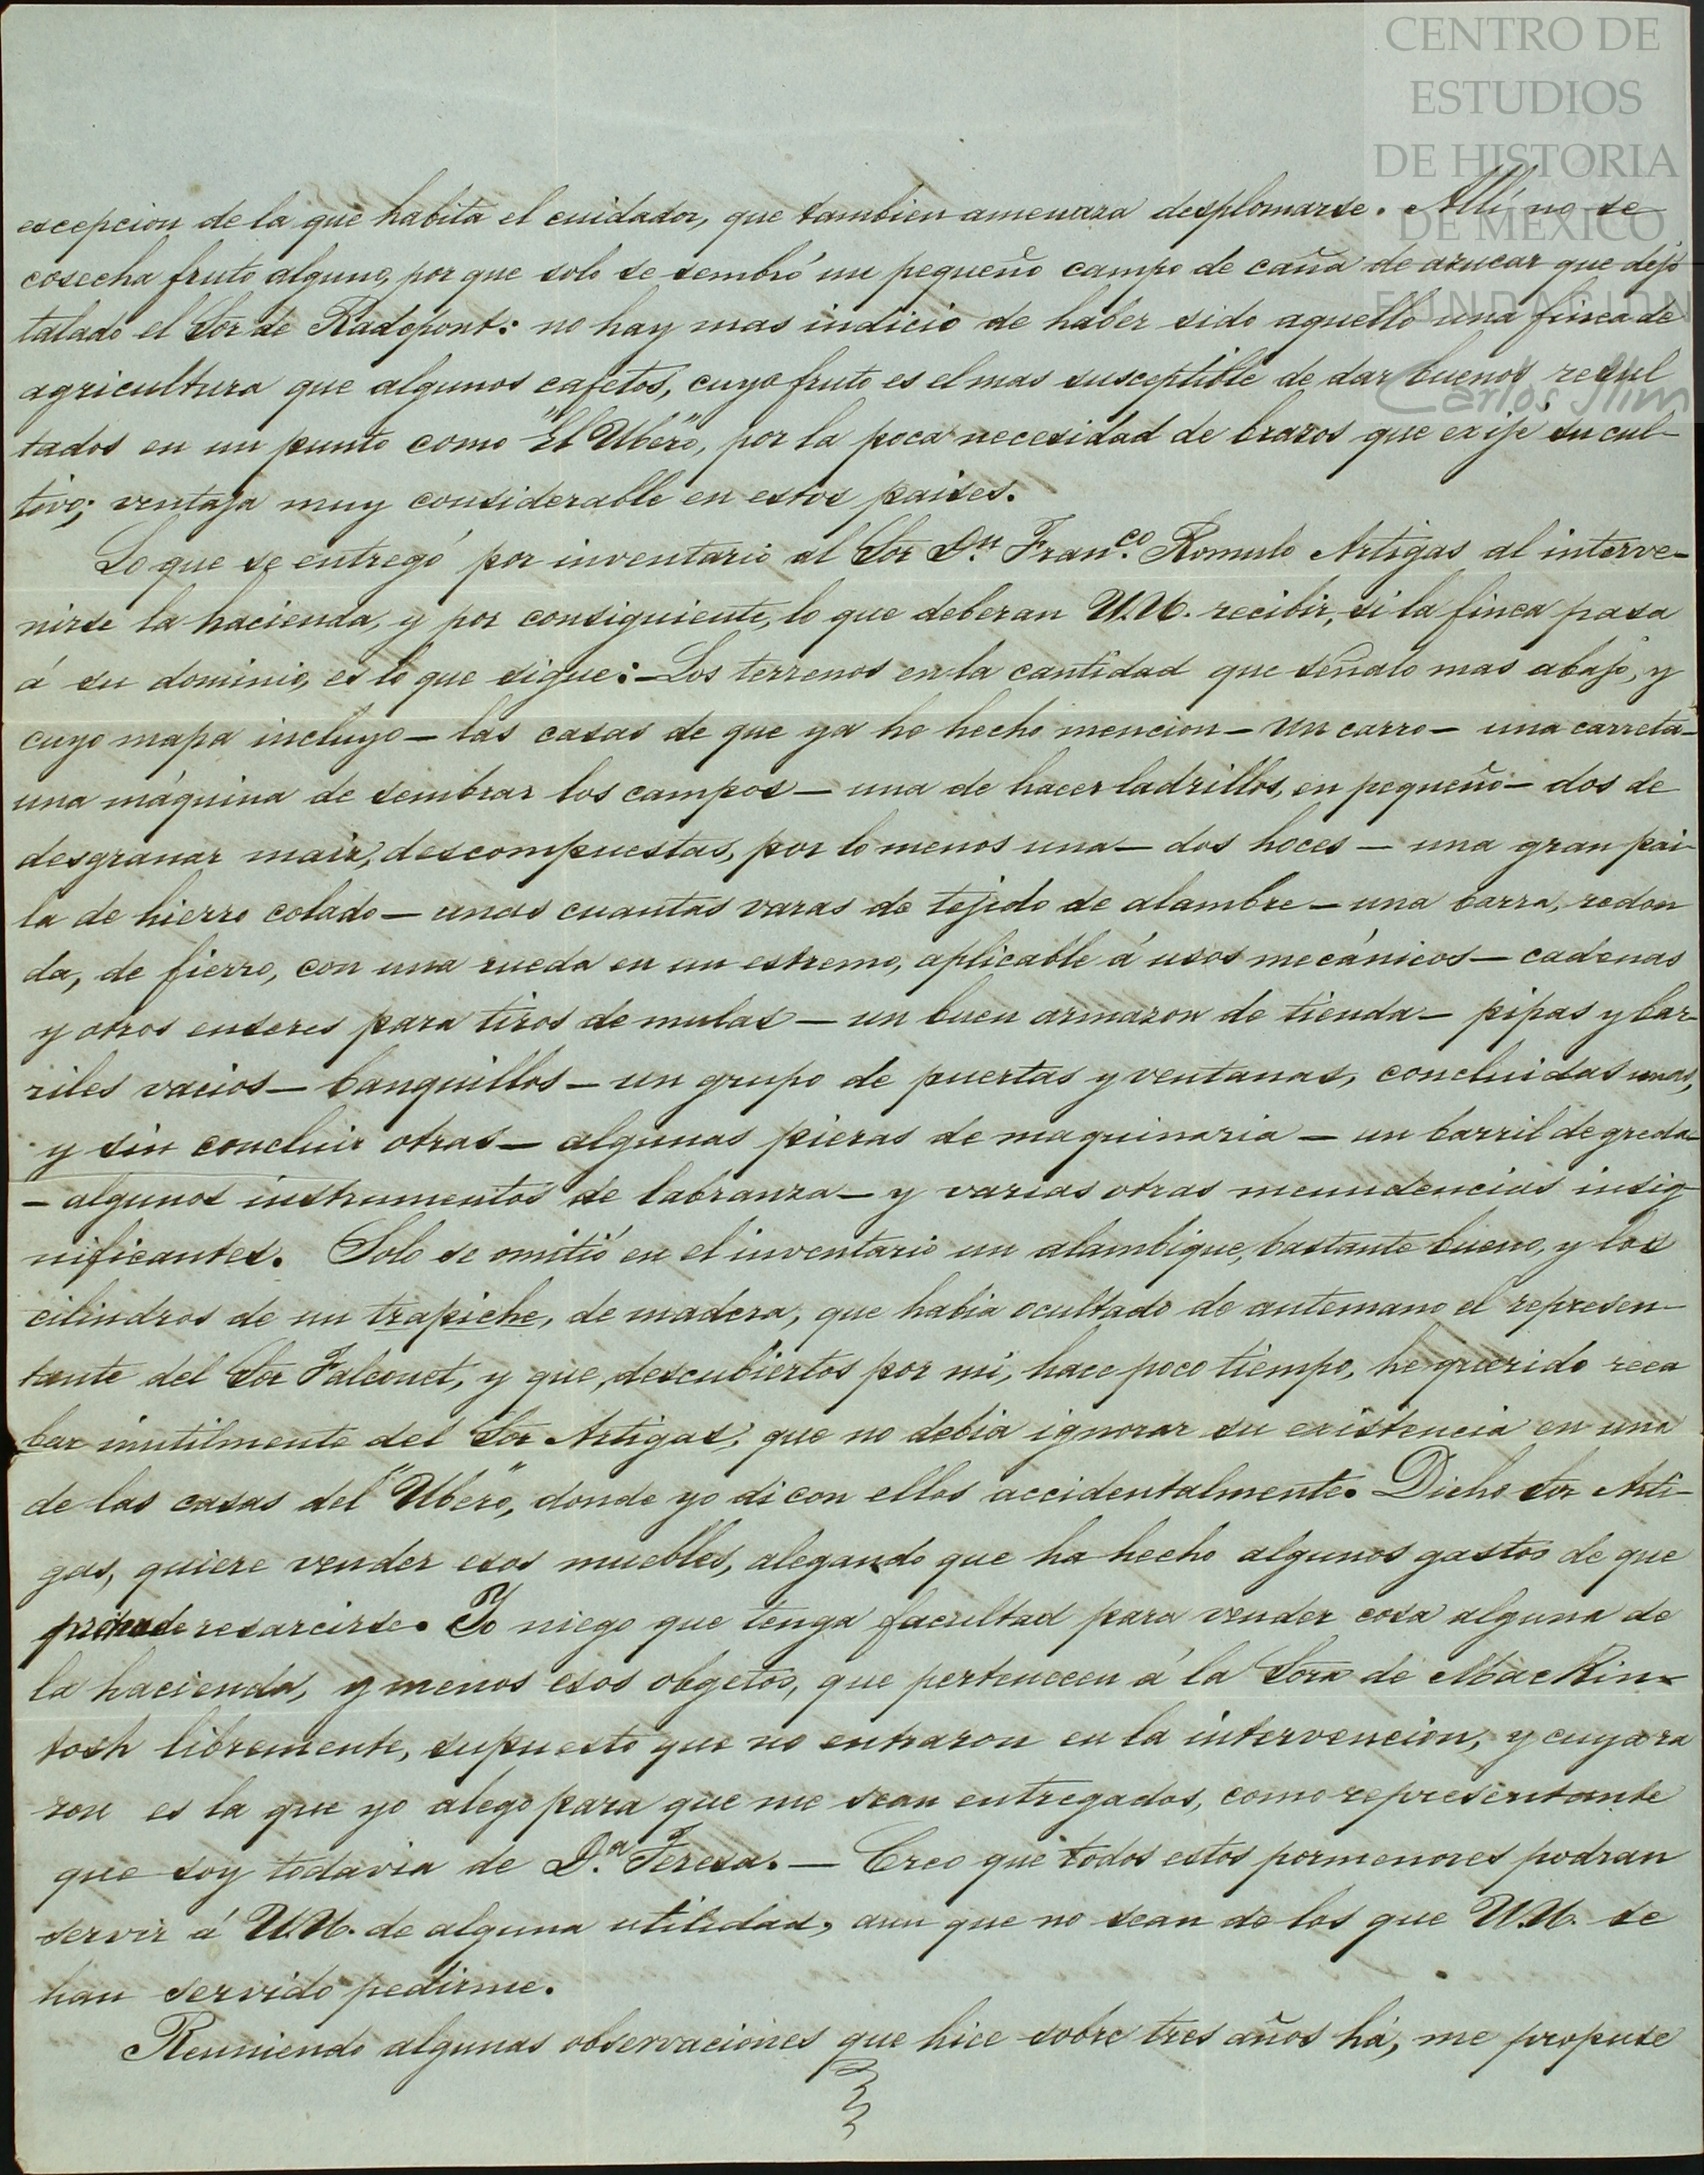 CENTRO DE
ESTUDIOS
DE HISTORIA
DE MÉXICO
FUNDACIÓN
Carlos Slim
escepcion de la que habita el cuidador, que tambien amenaza desplomarse. Allí no se
cosecha fruto alguno, por que solo se sembró un pequeño campo de caña de azucar que dejó
talado el Sor de Radepont: no hay mas indicio de haber sido aquello una finca de
agricultura que algunos cafetos, cuyo fruto es el mas susceptible de dar buenos resul
tados en un punto como "El Ubero", por la poca necesidad de brazos que exije su cul-
tivo; ventaja muy considerable en estos paises.
Lo que se entregó por inventario al Sor Dn. Franco. Romulo Artigas al interve-
nirse la hacienda, y por consiguiente, lo que deberan U.U. recibir, si la finca pasa
á su dominio, es lo que sigue: - Los terrenos en la cantidad que señalo mas abajo, y
cuyo mapa incluyo - las casas de que ya he hecho mencion - Un carro - una carreta -
una máquina de sembrar los campos - una de hacer ladrillos, en pequeño - dos de
desgranar maiz, descompuestas, por lo menos una - dos hoces - una gran pai-
la de hierro colado - unas cuantas varas de tejido de alambre - una barra, redon
da, de fierro, con una rueda en un estremo, aplicable á usos mecánicos - cadenas
y otros enseres para tiros de mulas - un buen armazon de tienda - pipas y bar-
riles vacios - banquillos - un grupo de puertas y ventanas, concluidas unas,
y sin concluir otras - algunas piezas de maquinaria - un barril de greda -
- algunos instrumentos de labranza - y varias otras menudencias insig-
nificantes. Solo se omitió en el inventario un alambique, bastante bueno, y los
cilindros de un trapiche, de madera, que habia ocultado de antemano el represen-
tante del Sor Falconet, y que, descubiertos por mi, hace poco tiempo, he querido reca
bar inutilmente del Sor Artigas, que no debia ignorar su existencia en una
de las casas del "Ubero", donde yo di con ellos accidentalmente. Dicho Sor Arti-
gas, quiere vender esos muebles, alegando que ha hecho algunos gastos de que
pretende resarcirse. Yo niego que tenga facultad para vender cosa alguna de
la hacienda, y menos esos obgetos, que pertenecen á la Sora de MacKin-
tosh libremente, supuesto que no entraron en la intervencion, y cuya ra
zon es la que yo alego para que me sean entregados, como representante
que soy todavia de Da. Teresa. - Creo que todos estos pormenores podran
servir á U.U. de alguna utilidad, aun que no sean de los que U.U. se
han servido pedirme.
Reuniendo algunas observaciones que hice sobre tres años há, me propuse